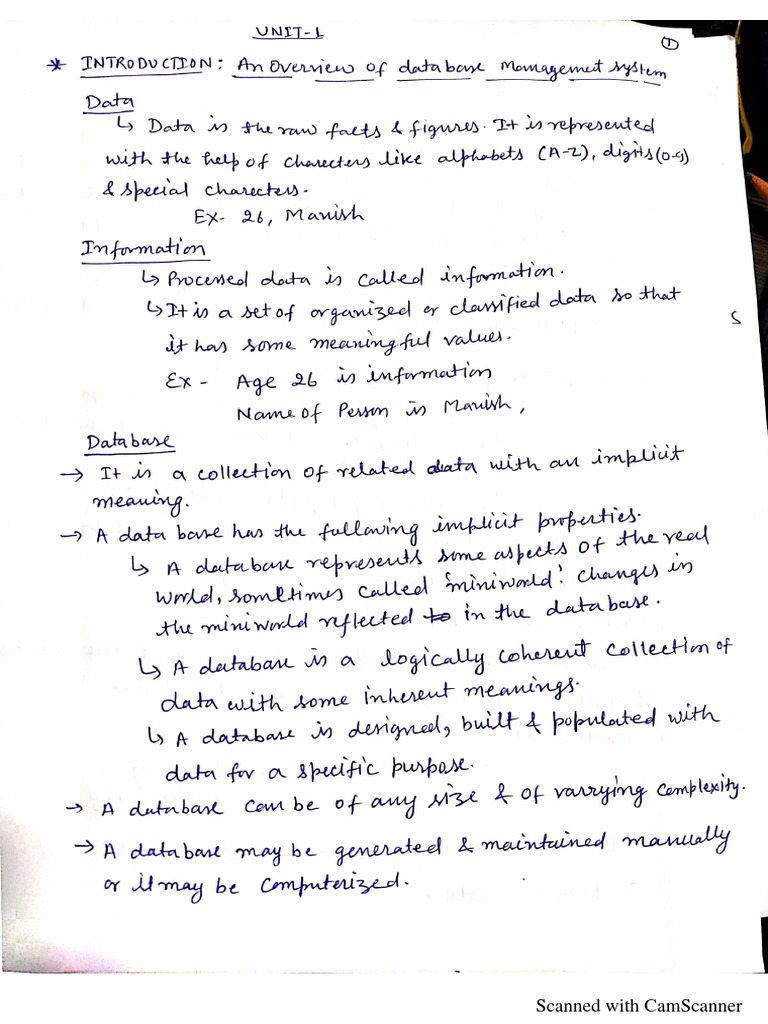 UNIT-1
①
* INTRODUCTION: An Overview of database Management system
Data
↳ Data is the raw facts & figures. It is represented
with the help of charecters like alphabets (A-Z), digits (0-9)
& special charecters.
Ex- 26, Manish
Information
↳ Processed data is called information.
↳ It is a set of organized or classified data so that
it has some meaningful values.
Ex - Age 26 is information
Name of Person is Manish,
Database
→ It is a collection of related data with an implicit
meaning.
→ A data base has the following implicit properties.
↳ A database represents some aspects of the real
world, sometimes called 'miniworld'. Changes in
the miniworld reflected to in the database.
↳ A database is a logically coherent collection of
data with some inherent meanings.
↳ A database is designed, built & populated with
data for a specific purpose.
→ A database can be of any size & of varrying complexity.
→ A database may be generated & maintained manually
or it may be computerized.
S
Scanned with CamScanner